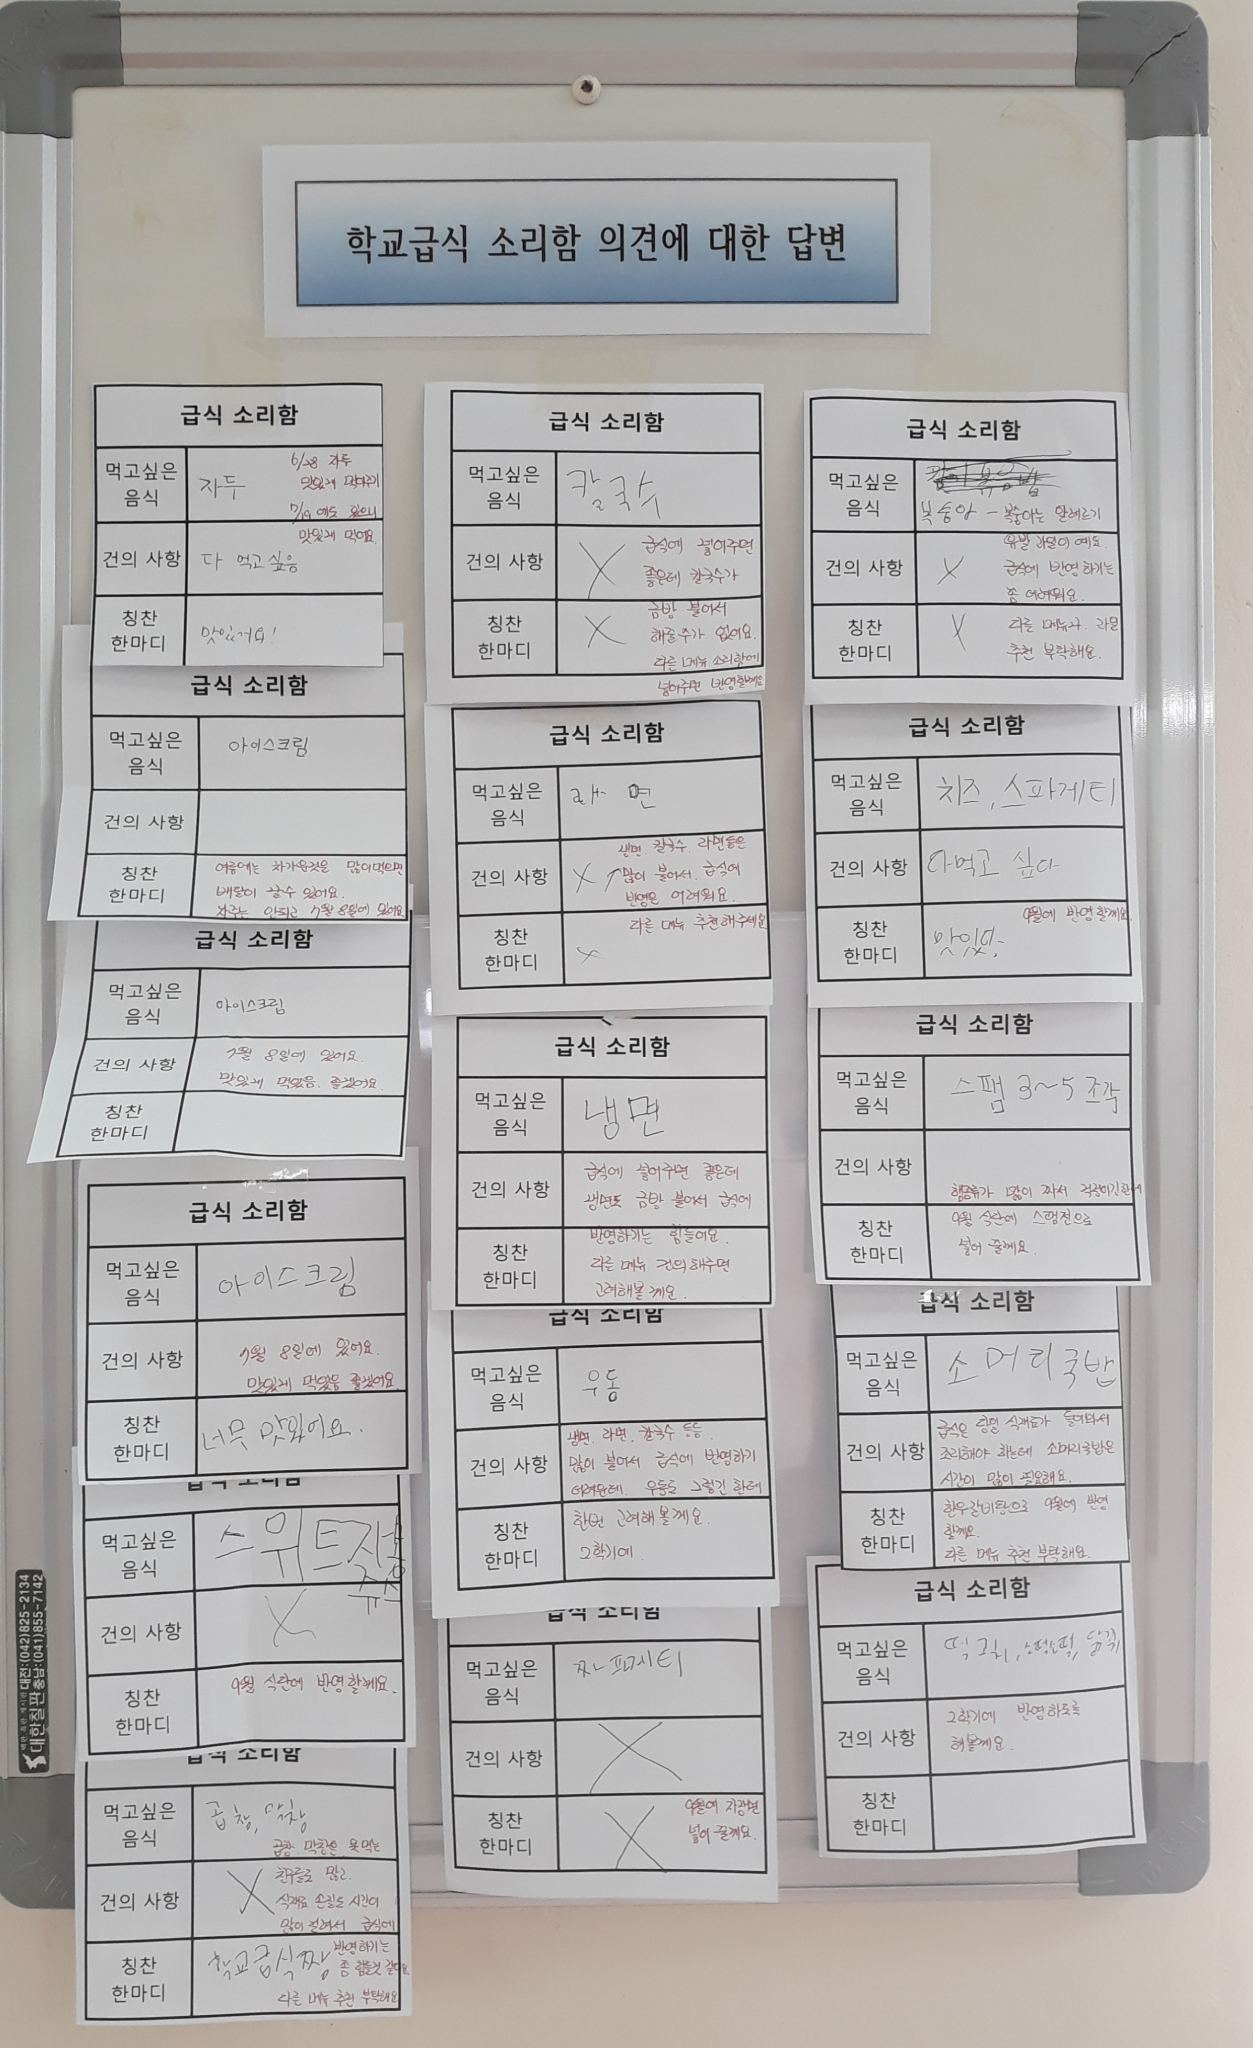 학교급식 소리함 의견에 대한 답변
급식 소리함
먹고싶은
음식
자두
6/28 자두
맛있게 먹어주기
7/19 에도 있으니
맛있게 먹어요.
건의 사항
다 먹고 싶음
칭찬
한마디
맛있거요!
급식 소리함
먹고싶은
음식
아이스크림
건의 사항
칭찬
한마디
여름에는 차가운것을 많이먹으면
배탈이 날수 있어요.
자주는 안되고 7월 8일에 있어요
급식 소리함
먹고싶은
음식
아이스크림
건의 사항
7월 8일에 있어요.
맛있게 먹었음 좋겠어요.
칭찬
한마디
급식 소리함
먹고싶은
음식
아이스크림
건의 사항
7월 8일에 있어요.
맛있게 먹었음 좋겠어요.
칭찬
한마디
너무 맛있어요.
급식 소리함
먹고싶은
음식
스위트자몽
쥬스
건의 사항
X
칭찬
한마디
9월 식단에 반영할께요.
급식 소리함
먹고싶은
음식
곱창, 막창
곱창 막창은 못먹는
건의 사항
X
친구들도 많고.
식재료 손질도 시간이
많이 걸려서 급식에
칭찬
한마디
학교급식짱
반영하기는
좀 힘들것 같아요
다른 메뉴 추천 부탁해요
급식 소리함
먹고싶은
음식
칼국수
건의 사항
X
급식에 넣어주면
좋은데 칼국수가
칭찬
한마디
X
금방 불어서
해줄수가 없어요.
다른 메뉴 소리함에
넣어주면 반영할께요
급식 소리함
먹고싶은
음식
라면
건의 사항
X
냉면. 칼국수. 라면등은
많이 불어서 급식에
반영은 어려워요.
칭찬
한마디
X
다른 메뉴 추천해주세요
급식 소리함
먹고싶은
음식
냉면
건의 사항
급식에 넣어주면 좋은데
냉면도 금방 불어서 급식에
칭찬
한마디
반영하기는 힘들어요.
다른 메뉴 건의해주면
고려해볼께요.
급식 소리함
먹고싶은
음식
우동
건의 사항
냉면. 라면. 칼국수 등등.
많이 불어서 급식에 반영하기
어려운데. 우동도 그렇긴 한데
칭찬
한마디
한번 고려해 볼께요.
2학기에.
급식 소리함
먹고싶은
음식
짜파게티
건의 사항
X
칭찬
한마디
X
9월에 자장면
넣어 줄께요.
급식 소리함
먹고싶은
음식
복숭아 - 복숭아는 알레르기
건의 사항
X
유발 과일이 예요.
급식에 반영하기는
좀 어려워요.
칭찬
한마디
X
다른 메뉴나 과일
추천 부탁해요.
급식 소리함
먹고싶은
음식
치즈, 스파게티
건의 사항
다먹고 싶다
칭찬
한마디
9월에 반영할께요
급식 소리함
먹고싶은
음식
스팸 3~5 조각
건의 사항
햄종류가 많이 짜서 걱정이긴한데
칭찬
한마디
9월 식단에 스팸전으로
넣어 줄께요.
급식 소리함
먹고싶은
음식
소머리국밥
건의 사항
급식은 당일 식재료가 들어와서
조리해야 하는데 소머리국밥은
시간이 많이 필요해요.
칭찬
한마디
한우갈비탕으로 9월에 반영
할께요.
다른 메뉴 추천 부탁해요.
급식 소리함
먹고싶은
음식
건의 사항
2학기에 반영하도록
해볼께요.
칭찬
한마디
대한칠판 대전:(042)825-2134
충남:(041)855-7142